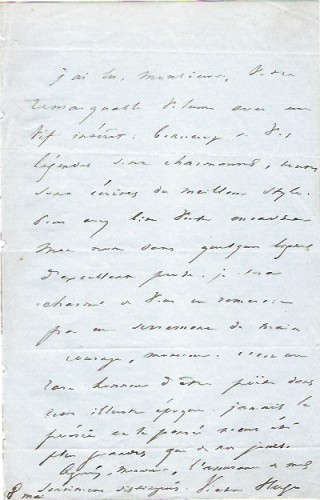 j'ai lu, monsieur, votre
remarquable volume avec un
vif intérêt. beaucoup de vos
légendes sont charmantes, toutes
sont écrites du meilleur style.
Vous avez bien voulu
mon nom dans quelques lignes
d'excellente prose. je serai
charmé de vous en remercier
par un serrement de main
courage, monsieur. c'est un
rare honneur d'être poète dans
cette illustre époque. jamais la
poésie et la pensée n'ont été
plus grandes que de nos jours.
Agréez, monsieur, l'assurance de mes
sentiments distingués. Victor Hugo
8 mai